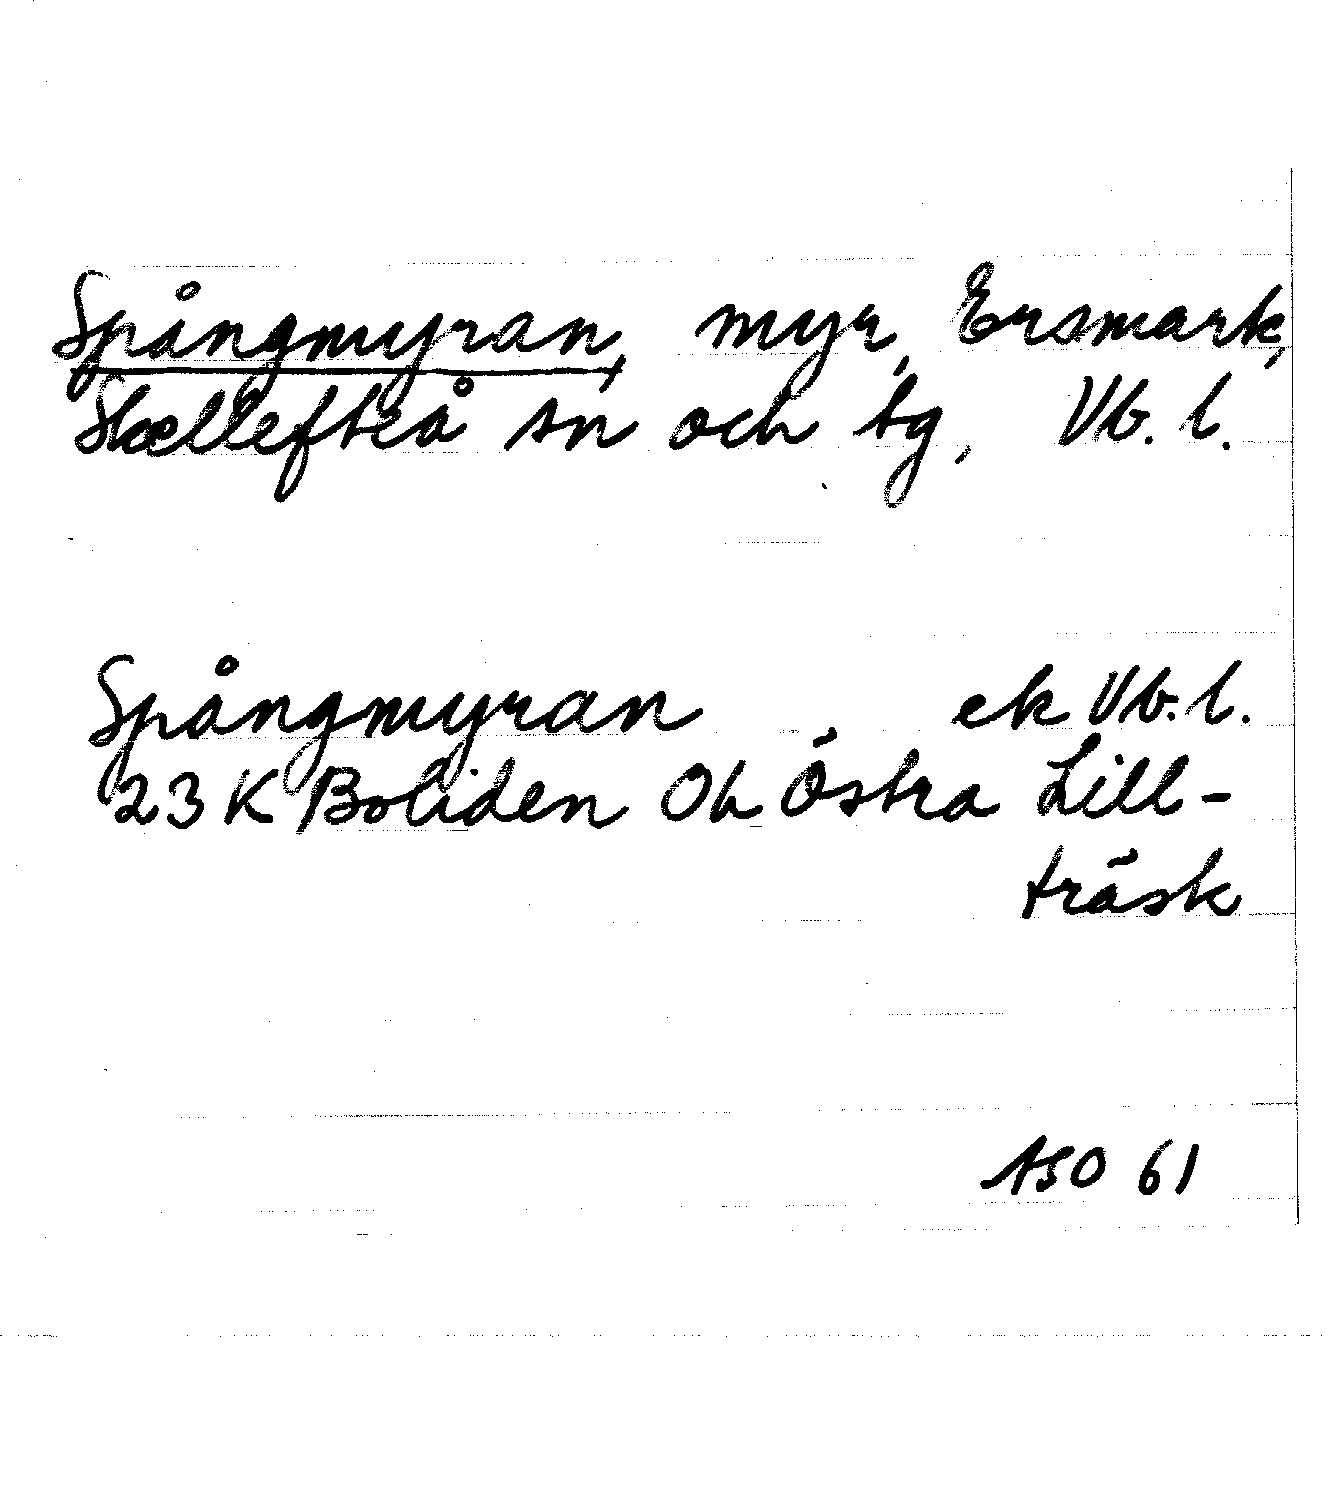 Spångmyran, myr, Ersmark,
Skellefteå sn och tg, Vb. l.
Spångmyran ek Vb. l.
23 K Boliden Oh Östra Lill-
träsk
ASO 61